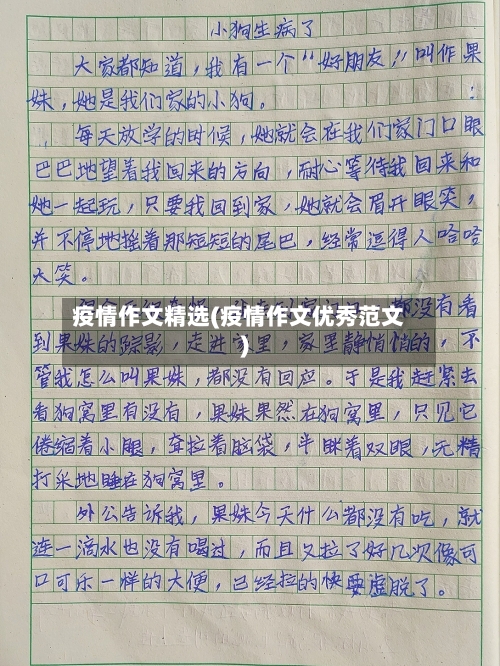 小狗生病了
大家都知道，我有一个"好朋友"叫作果
妹，她是我们家的小狗。
每天放学的时候，她就会在我们家门口眼
巴巴地望着我回来的方向，耐心等待我回来和
她一起玩，只要我回到家，她就会眉开眼笑，
并不停地摇着那短短的尾巴，经常逗得人哈哈
大笑。
都没有看
疫情作文精选(疫情作文优秀范文
)
到果妹的踪影，走进家里，家里静悄悄的，不
管我怎么叫果妹，都没有回应。于是我赶紧去
看狗窝里有没有，果妹果然在狗窝里，只见它
倦缩着小腿，耷拉着脑袋，半眯着双眼，无精
打采地睡在狗窝里。
外公告诉我，果妹今天什么都没有吃，就
连一滴水也没有喝过，而且又拉了好几次像可
口可乐一样的大便，已经拉的快要虚脱了。